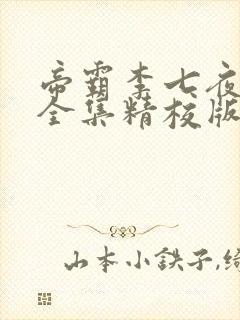 帝霸李七夜
全集精校版
山本小鉄子,绮